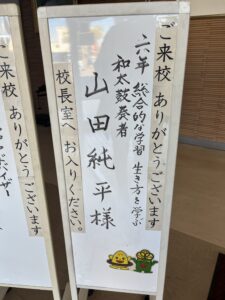 ご来校 ありがとうございます
六年 総合的な学習 生き方を学ぶ
和太鼓奏者
山田純平様
校長室へ お入りください。
ご来校 ありがとうございます